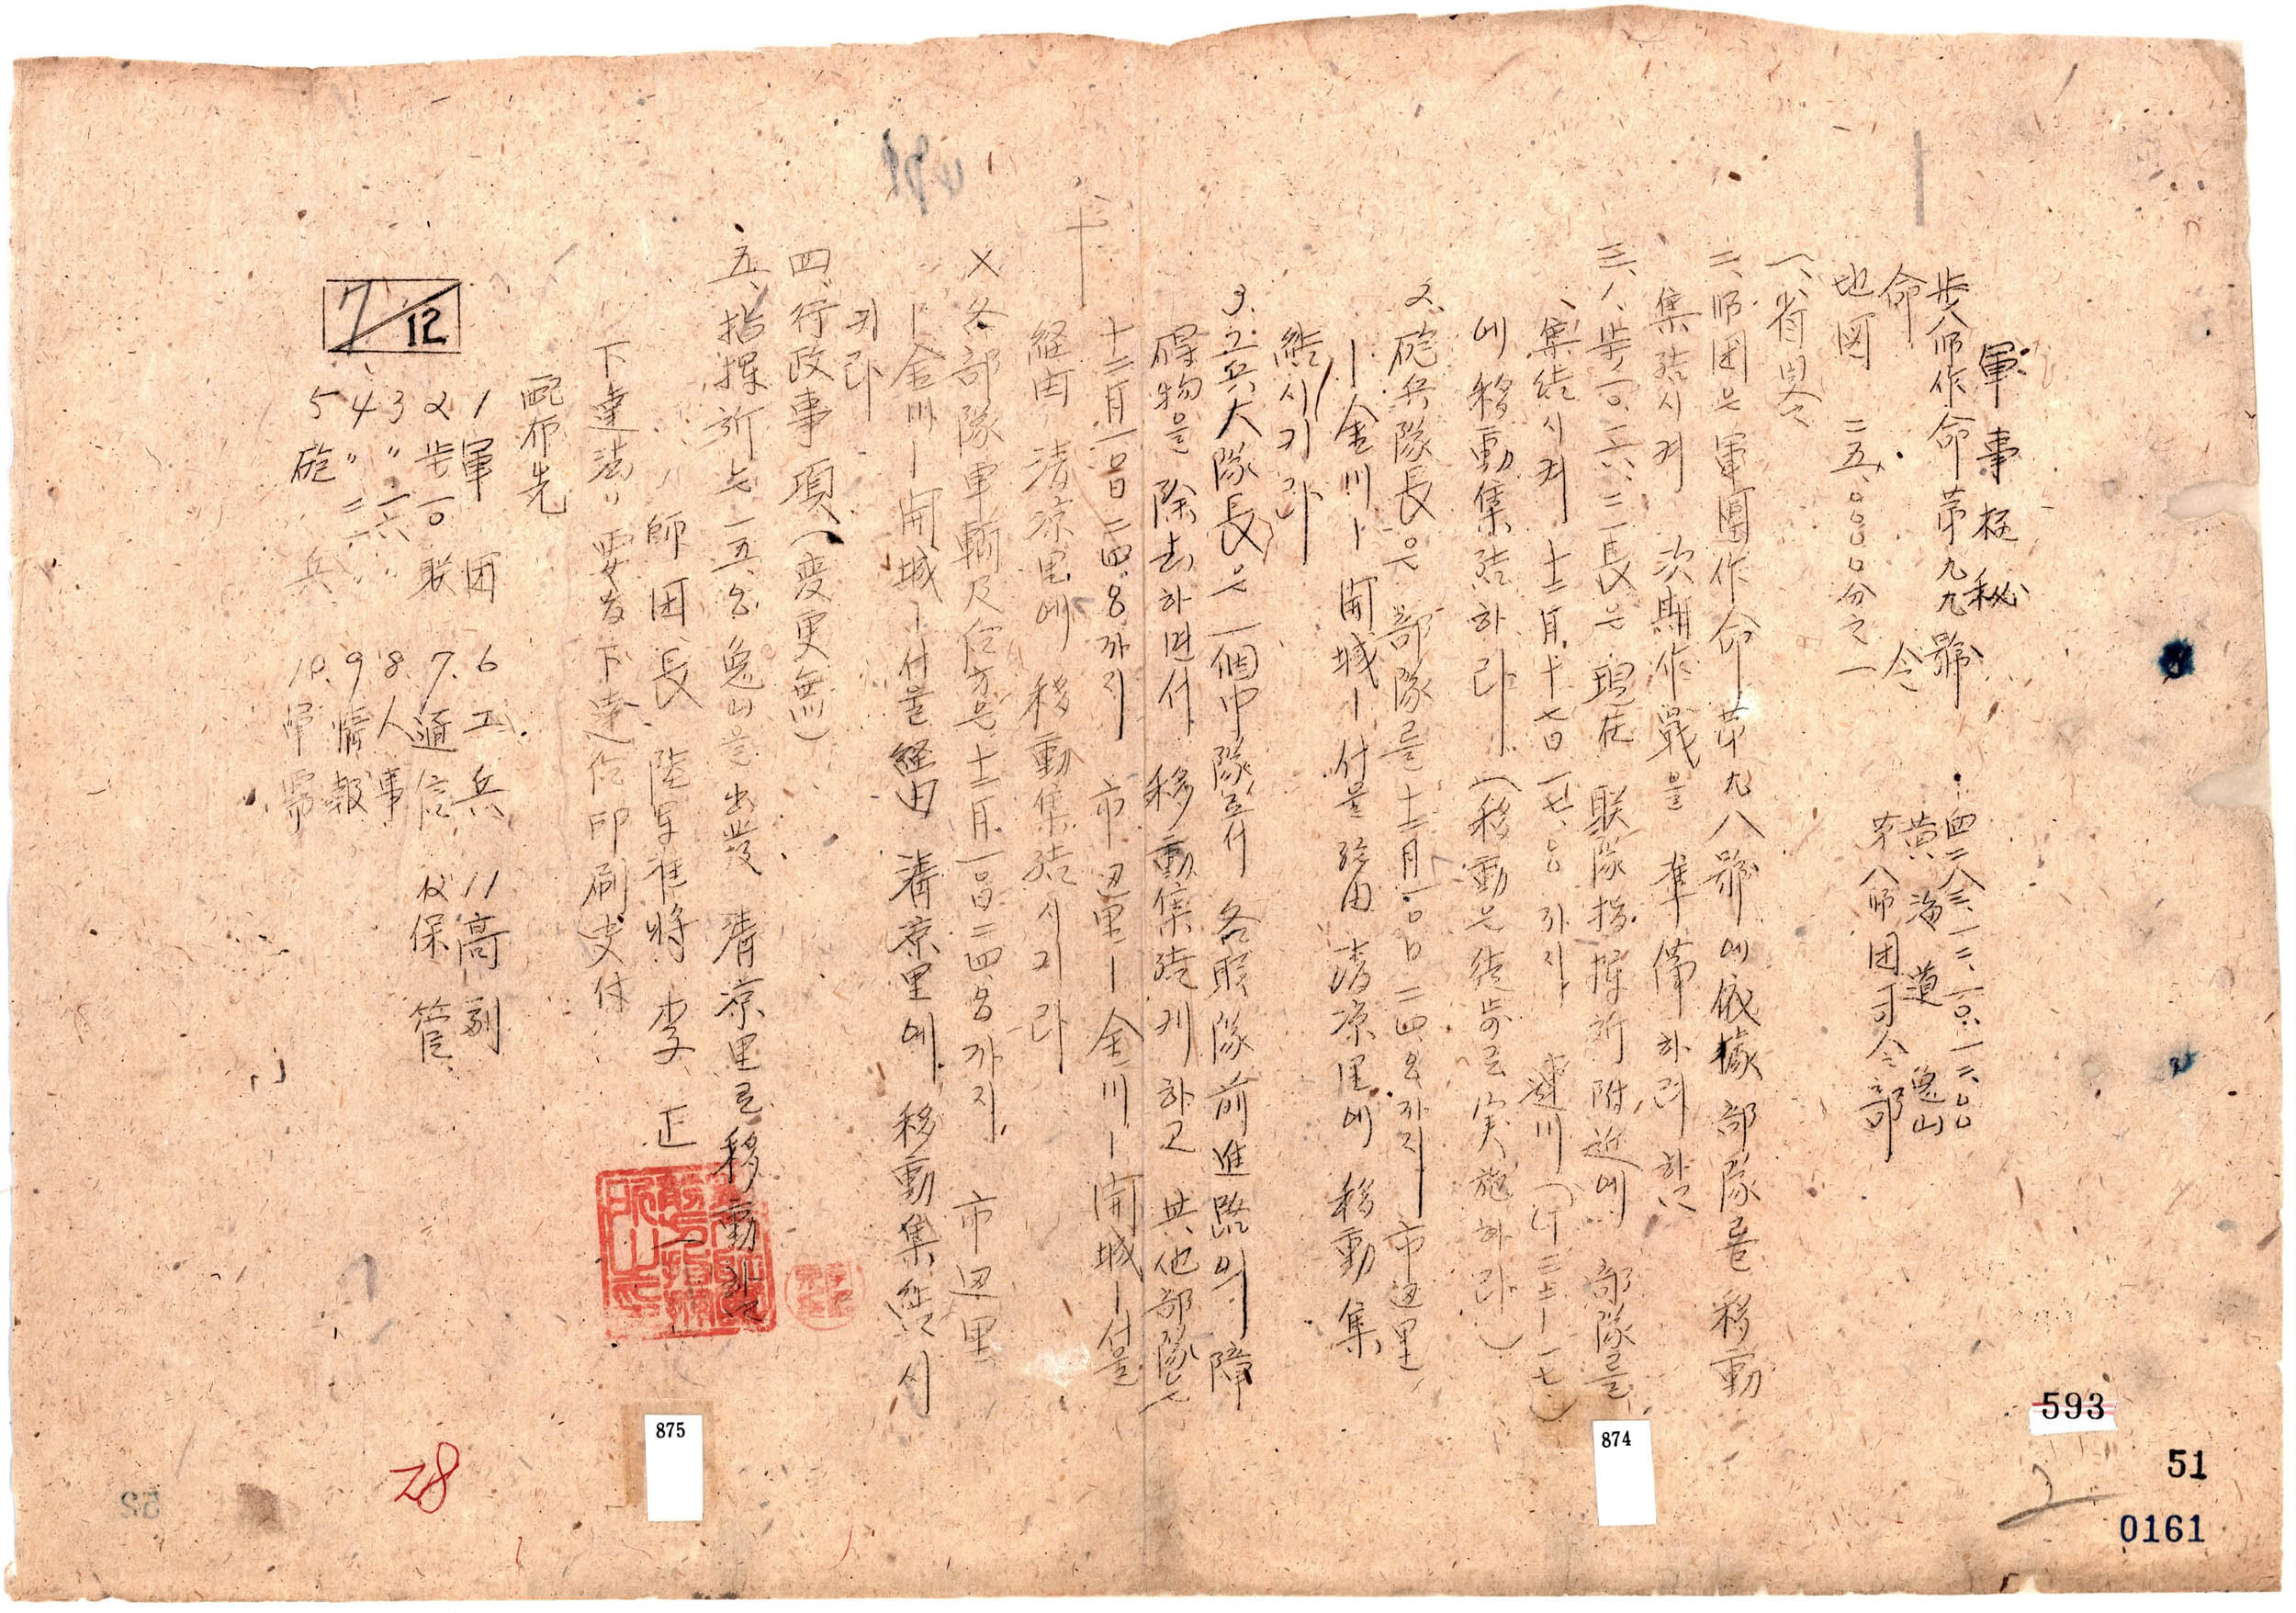 軍事極秘
步八師作命第九九號
四二八三、一二、一〇、一二、〇〇
黃海道 兎山
第八師団司令部
命 令
地図 二五、〇〇〇分之一
一、省畧
二、師団은 軍團作命第九八號에 依據 部隊를 移動
集結시켜 次期作戰을 準備하려 함
三、1、步一〇、一六、二一長은 現在 联隊指揮所附近에 部隊를
集結시켜 十二月十七日 一七、〇〇까지 連川
에 移動集結하라 (移動은 徒步로 実施하라)
2、砲兵隊長은 部隊를 十二月一〇日 二四、〇〇까지 市辺里
ㅣ金川ㅣ開城ㅣ서울 経由 淸凉里에 移動集
結시키라
3、工兵大隊長은 一個中隊로서 各联隊前進路의 障
碍物을 除去하면서 移動集結케 하고 其他部隊는
十二月一〇日 二四、〇〇까지 市辺里ㅣ金川ㅣ開城ㅣ서울
経由 淸凉里에 移動集結시키라
4、各部隊車輌及 十二月一〇日 二四、〇〇까지 市辺里
ㅣ金川ㅣ開城ㅣ서울 経由 淸凉里에 移動集結시
키라
四、行政事項(変更無)
五、指揮所는 一五、〇〇 兎山을 出發 淸凉里로 移動함
師団長 陸軍准將 李 正 一
下達法 要旨下達后印刷交付
配布先
1 軍団 6 工兵 11 高副
2 步一〇联 7 通信 12 保管
3 〃一六〃 8 人事
4 〃二一〃 9 情報
5 砲兵 10 軍需
7/12
875
874
593
51
0161
2
28
52